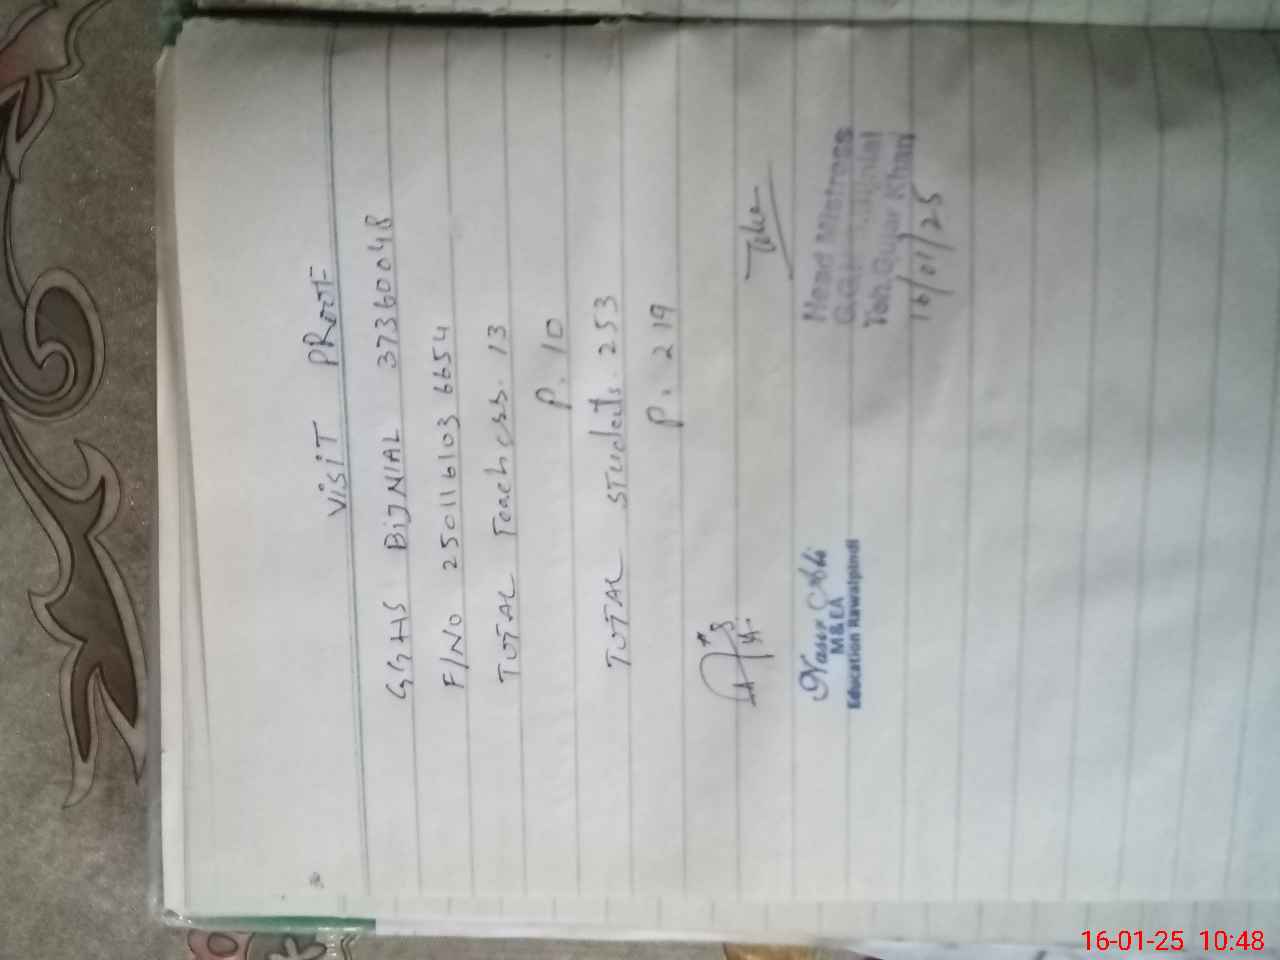 VISIT PROOF
GGHS BIJNIAL 37360048
F/NO 250116103 6654
TOTAL Teachers. 13
P. 10
TOTAL STudents. 253
P. 219
Naser Ali
M & EA
Education Rawalpindi
Head Mistress
Teh. Gujar Khan
16/01/25
16-01-25 10:48